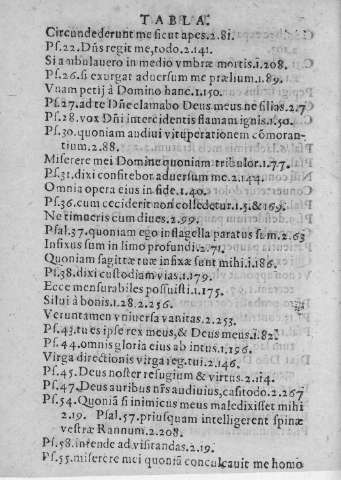 TABLA.
Circundederunt me sicut apes.2.81.
Ps.22.Dñs regit me, todo.2.141.
Si ambulauero in medio vmbræ mortis.1.208.
Ps.26.si exurgat aduersum me prælium.1.89.
Vnam petij à Domino hanc.1.150.
Ps.27.ad te Dñe clamabo Deus meus ne silias.2.7
Ps.28.vox Dñi intercidentis flamam ignis.1.50.
Ps.30.quoniam audiui vituperationem cõmoran-
tium.2.88.
Miserere mei Domine quoniam tribulor.1.77.
Ps.31.dixi confitebor aduersum me.2.144.
Omnia opera eius in fide.1.40.
Ps.36.cum ceciderit non colledetur.1.5.&169.
Ne timueris cum diues.2.99.
Psal.37.quoniam ego in flagella paratus sum.2.63
Infixus sum in limo profundi.2.71.
Quoniam sagittæ tuæ infixæ sunt mihi.1.186.
Ps.38.dixi custodiam vias.1.179.
Ecce mensurabiles posuisti.1.175.
Silui à bonis.1.28.2.256.
Veruntamen vniuersa vanitas.2.253.
Ps.43.tu es ipse rex meus,& Deus meus.1.82.
Ps.44.omnis gloria eius ab intus.1.196.
Virga directionis virga reg.tui.2.146.
Ps.45.Deus noster refugium & virtus.2.114.
Ps.47.Deus auribus nrīs audiuius, castodo.2.267
Ps.54.Quoniã si inimicus meus maledixisset mihi
2.19. Psal.57.priusquam intelligerent spinæ
vestræ Rannum.2.208.
Ps.58.intende ad visitandas.2.19.
Ps.55.miserere mei quoniã conculcauit me homo